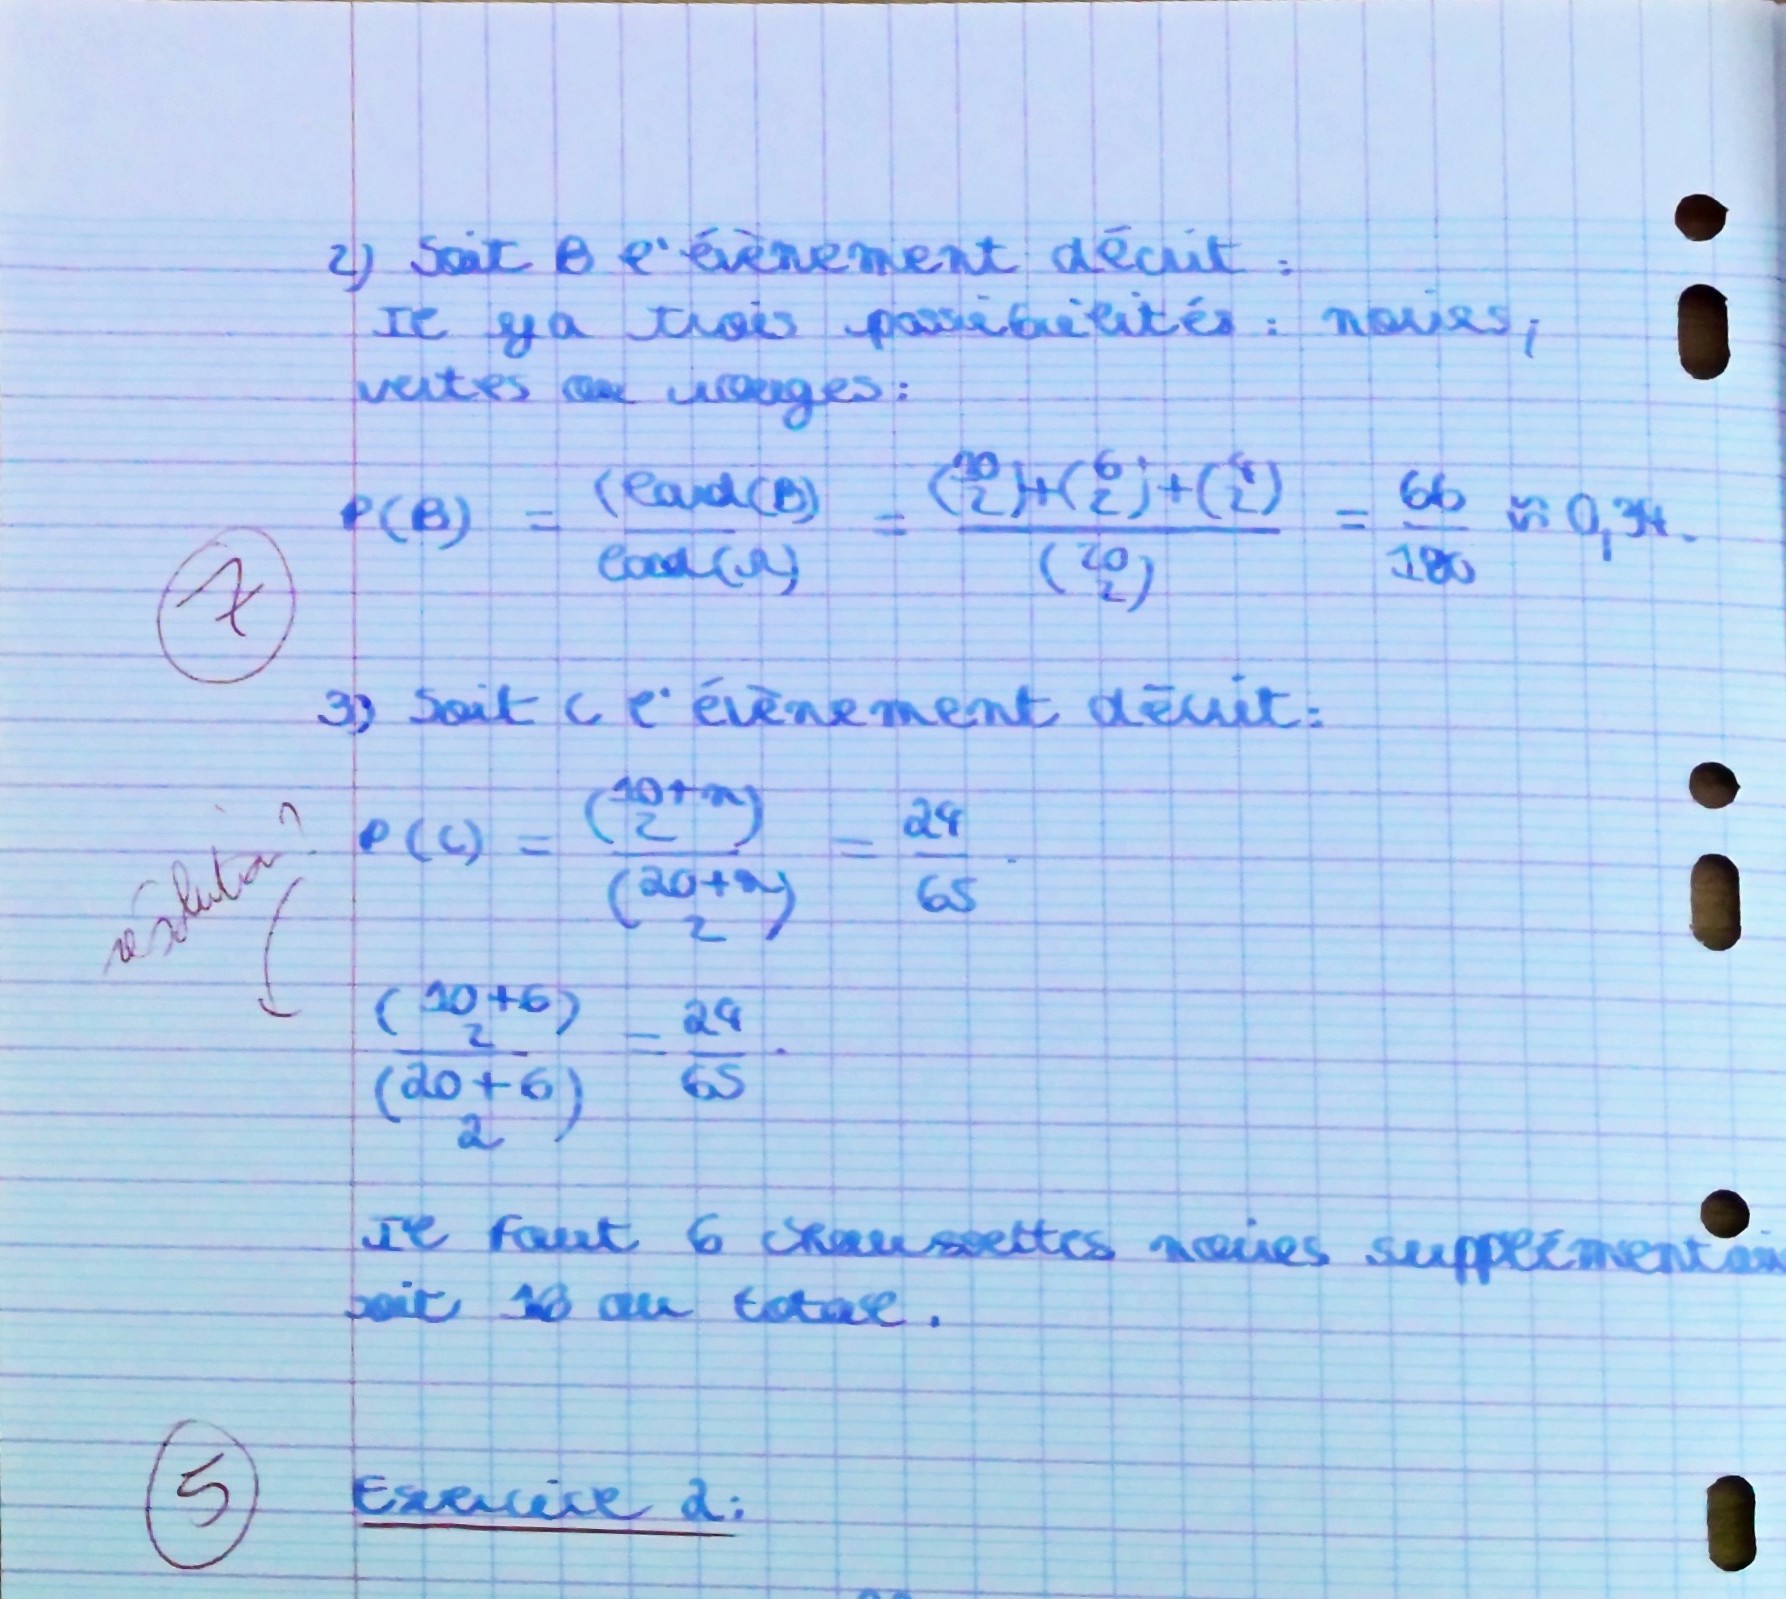 2) Soit B l'évènement décrit :
Il y a trois possibilités : noires,
vertes ou rouges :
P(B) = Card(B) / Card(Ω) = ((10 2) + (6 2) + (4 2)) / (20 2) = 66 / 190 ≈ 0,34.
7
3) Soit C l'évènement décrit :
résolution ?
P(C) = (10+n 2) / (20+n 2) = 24 / 65.
(10+6 2) / (20+6 2) = 24 / 65.
Il faut 6 chaussettes noires
soit 16 au totale.
5
Exercice 2 :